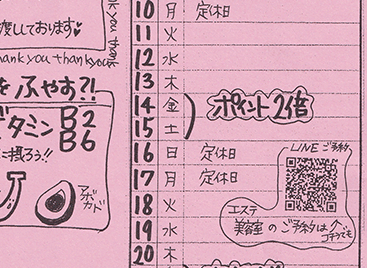 渡しております♥
thank you thank you
thank you
をふやす?!
ビタミン B2
B6
に摂ろう!!
アボカド
10 月 定休日
11 火
12 水
13 木
14 金 ポイント2倍
15 土
16 日 定休日
17 月 定休日
18 火
19 水
20 木
LINE ご予約
エステ
美容室 のご予約は
コチラでも